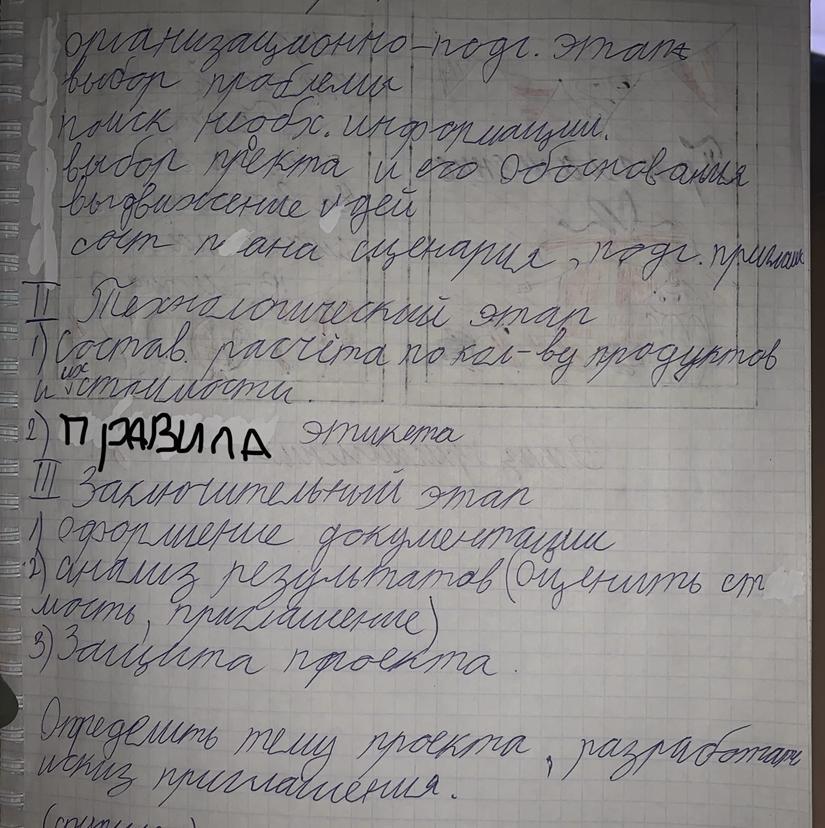 организационно-подг. этап
выбор проблемы
поиск необх. информации.
выбор пректа и его Обоснования
выдвижение идей
сост плана сценария, подг. приглаш
II Технологический этап
1) Состав. расчёта по кол-ву продуктов
и их стоимости.
2) ПРАВИЛА этикета
III Заключительный этап
1) оформление документации
2) анализ результатов (Оценить ст
мость, приглашение)
3) Защита проекта.
Определить тему проекта, разработать
искиз приглашения.